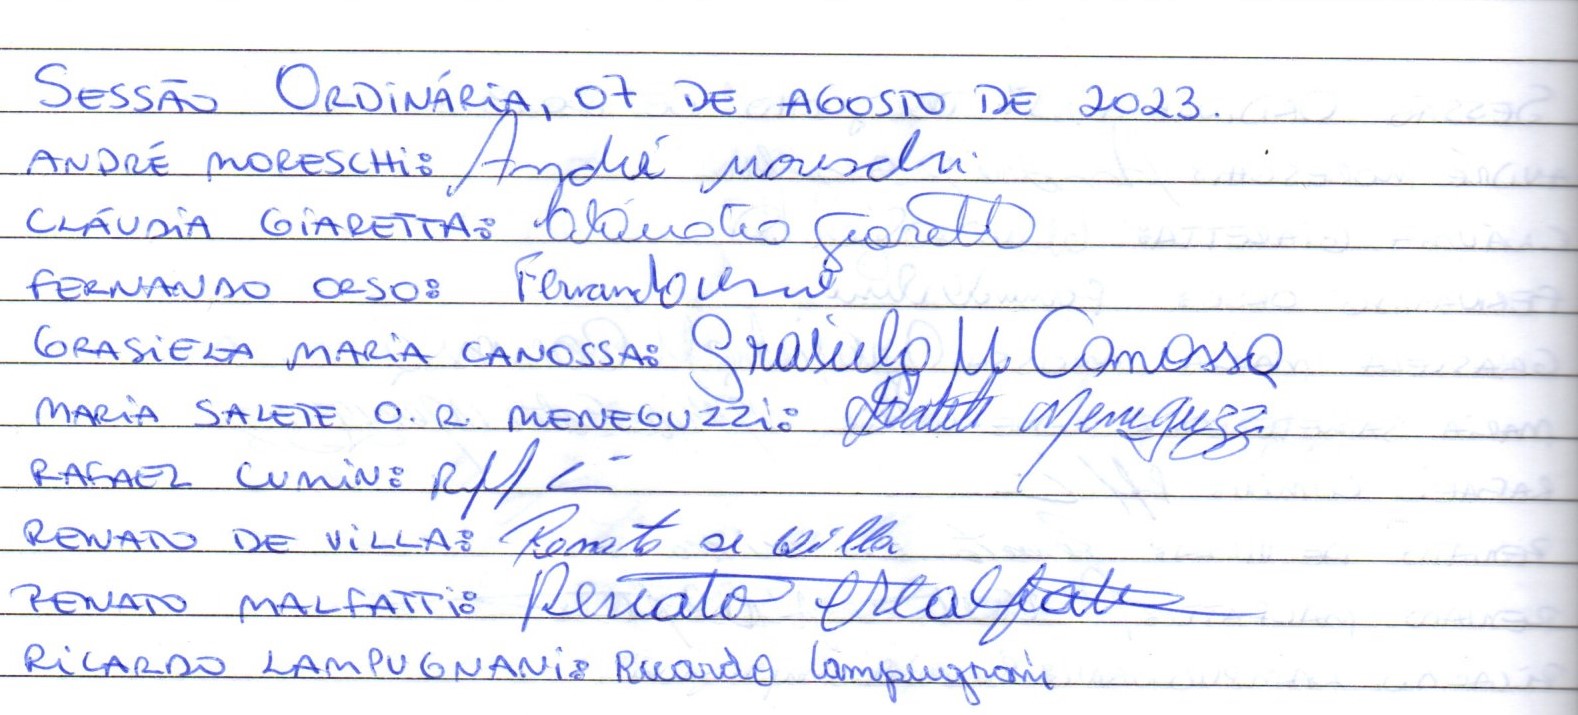 Sessão Ordinária, 07 de agosto de 2023.
André Moreschi: André Moreschi
Cláudia Giaretta: Cláudia Giaretta
Fernando Orso: Fernando Orso
Grasiela Maria Canossa: Grasiela M Canossa
Maria Salete O. R. Meneguzzi: Salete Meneguzzi
Rafael Cumin:
Renato De Villa: Renato de Villa
Renato Malfatti: Renato Malfatti
Ricardo Lampugnani: Ricardo Lampugnani